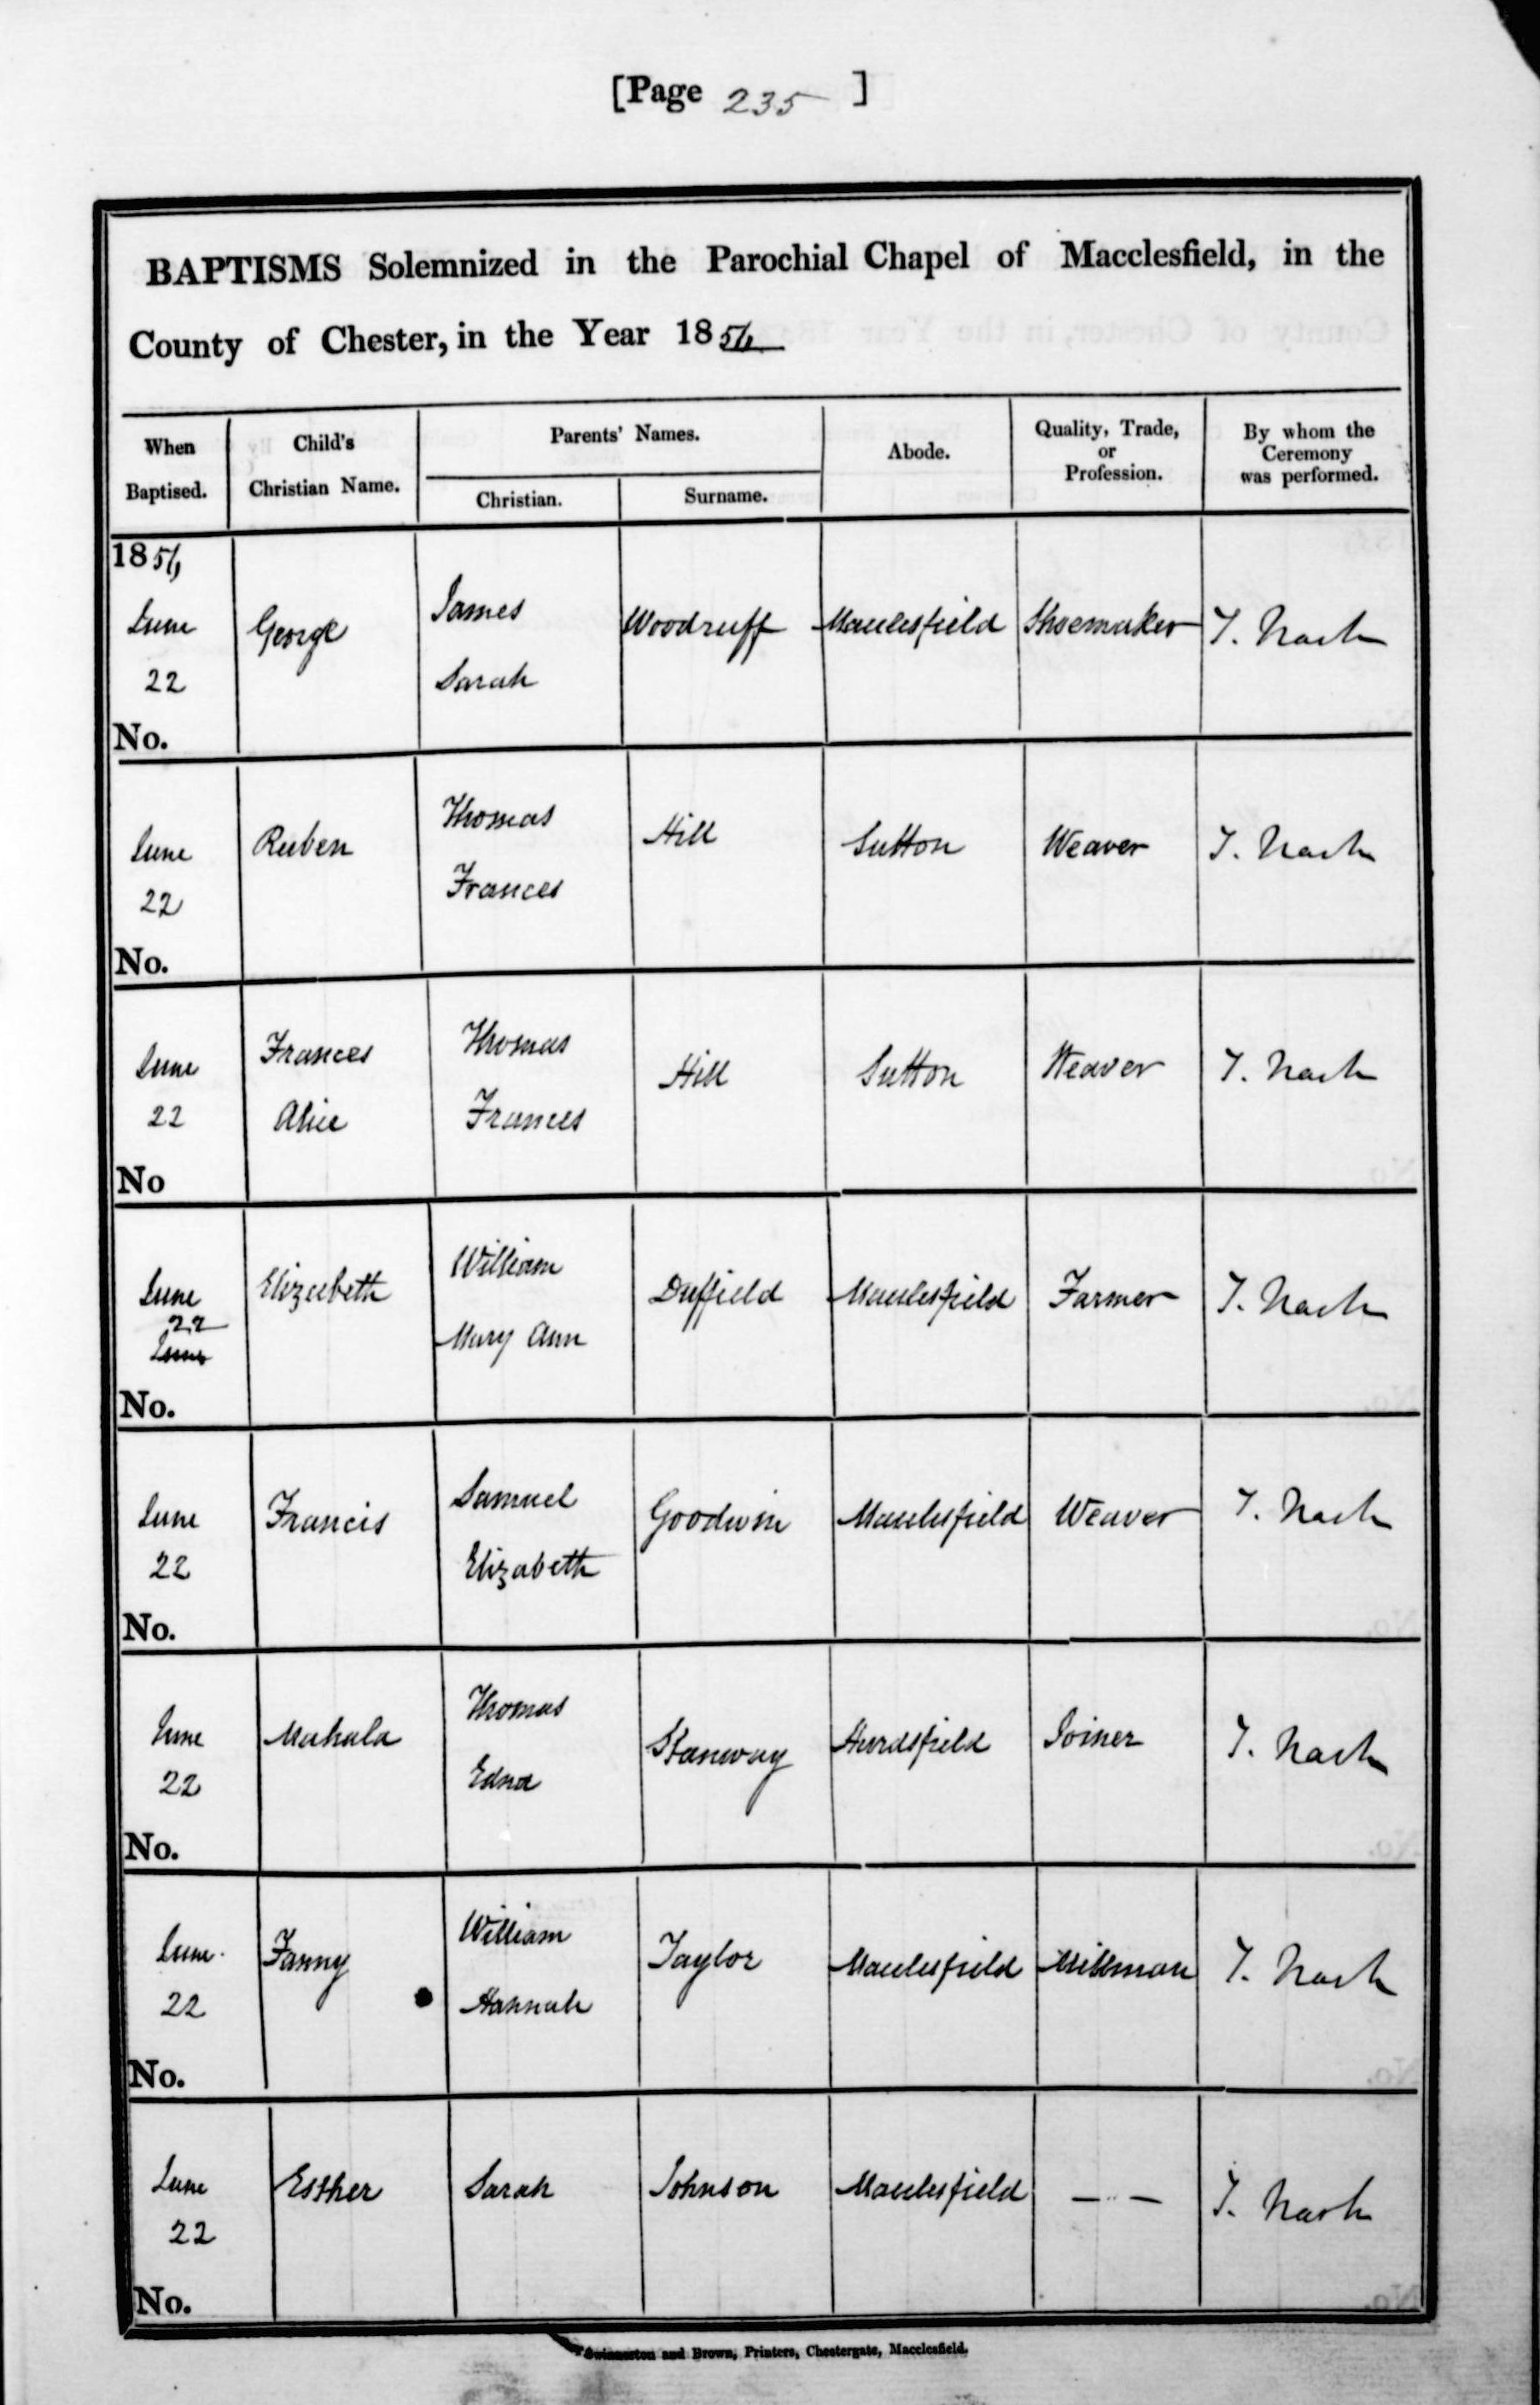 [Page 235 ]
BAPTISMS Solemnized in the Parochial Chapel of Macclesfield, in the
County of Chester, in the Year 1856
When Baptised.
Child's Christian Name.
Parents' Names.
Christian.
Surname.
Abode.
Quality, Trade, or Profession.
By whom the Ceremony was performed.
1856
June 22 George James Sarah Woodruff Macclesfield Shoemaker T. Nash
No.
June 22 Reuben Thomas Frances Hill Sutton Weaver T. Nash
No.
June 22 Frances Alice Thomas Frances Hill Sutton Weaver T. Nash
No
June 22 June Elizabeth William Mary Ann Duffield Macclesfield Farmer T. Nash
No.
June 22 Francis Samuel Elizabeth Goodwin Macclesfield Weaver T. Nash
No.
June 22 Mahala Thomas Edna Stanway Hurdsfield Joiner T. Nash
No.
June 22 Fanny William Hannah Taylor Macclesfield Millman T. Nash
No.
June 22 Esther Sarah Johnson Macclesfield — — T. Nash
No.
Swinnerton and Brown, Printers, Chestergate, Macclesfield.